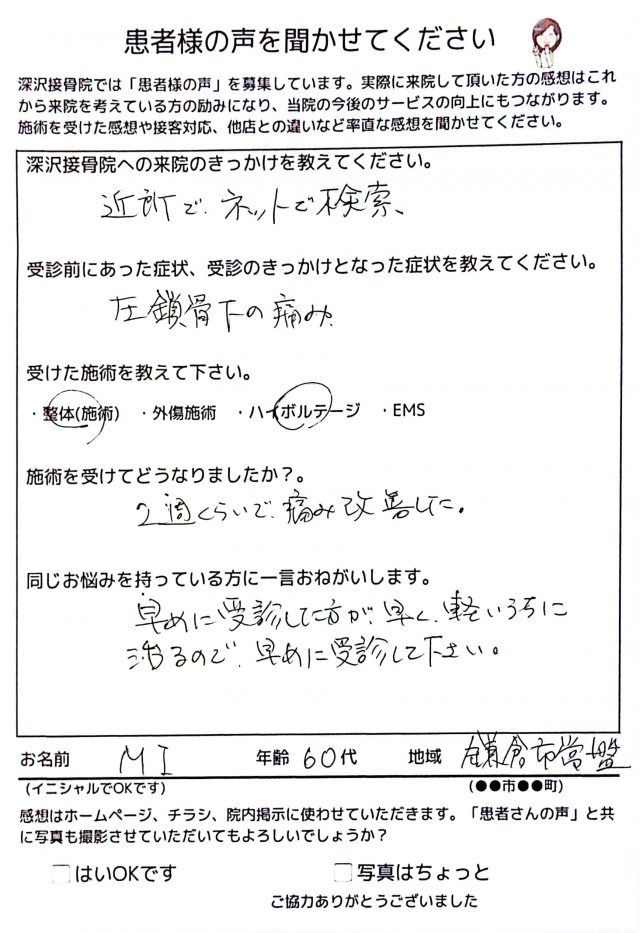 患者様の声を聞かせてください
深沢接骨院では「患者様の声」を募集しています。実際に来院して頂いた方の感想はこれ
から来院を考えている方の励みになり、当院の今後のサービスの向上にもつながります。
施術を受けた感想や接客対応、他店との違いなど率直な感想を聞かせてください。
深沢接骨院への来院のきっかけを教えてください。
近所で、ネットで検索、
受診前にあった症状、受診のきっかけとなった症状を教えてください。
左鎖骨下の痛み
受けた施術を教えて下さい。
・整体(施術) ・外傷施術 ・ハイボルテージ ・EMS
施術を受けてどうなりましたか？。
2週くらいで、痛み改善した。
同じお悩みを持っている方に一言おねがいします。
早めに受診した方が、早く、軽いうちに
治るので、早めに受診して下さい。
お名前 MI 年齢 60代 地域 鎌倉市常盤
(イニシャルでOKです) (●●市●●町)
感想はホームページ、チラシ、院内掲示に使わせていただきます。「患者さんの声」と共
に写真も撮影させていただいてもよろしいでしょうか？
はいOKです 写真はちょっと
ご協力ありがとうございました